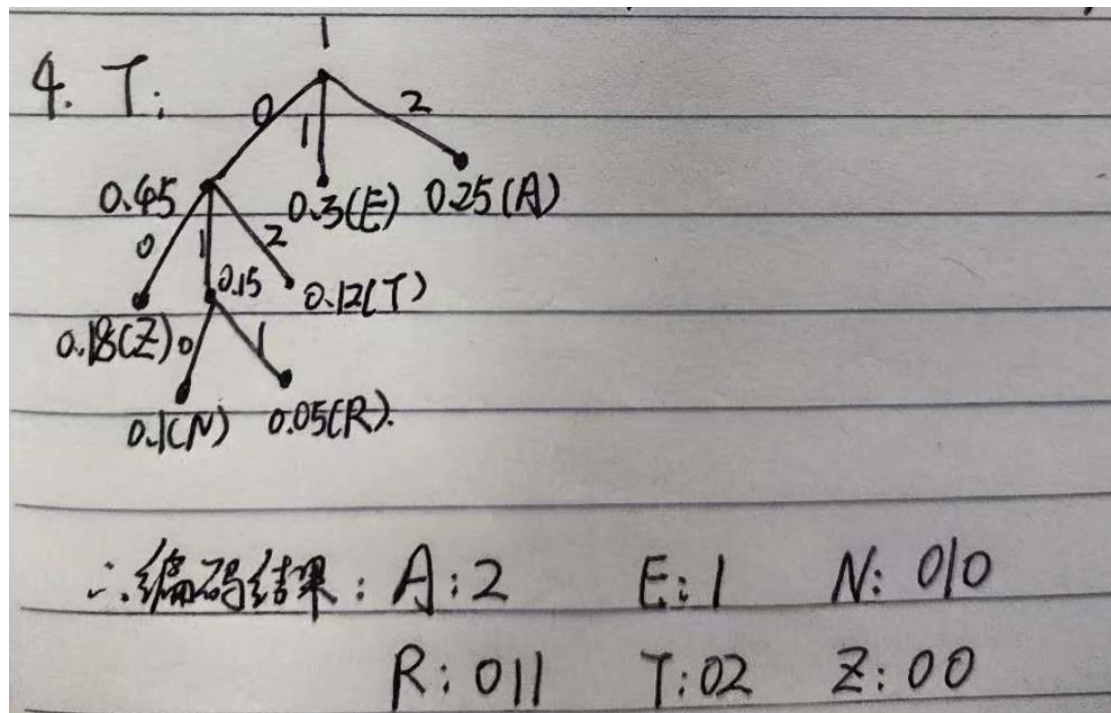 1
4. T:
0 1 2
0.45 0.3(E) 0.25(A)
0 1 2
0.15 0.12(T)
0.18(Z) 0 1
0.1(N) 0.05(R).
∴编码结果: A:2 E:1 N:010
R:011 T:02 Z:00